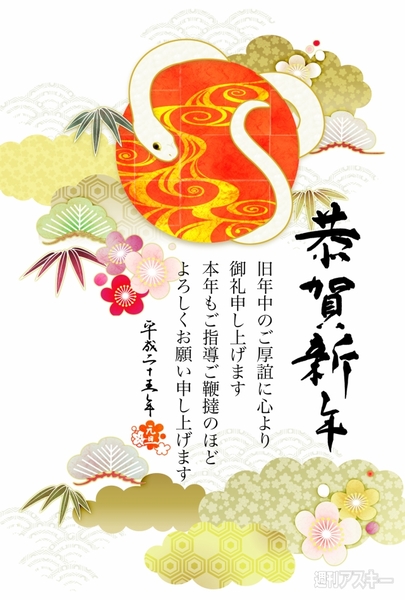 恭賀新年
旧年中のご厚誼に心より
御礼申し上げます
本年もご指導ご鞭撻のほど
よろしくお願い申し上げます
平成二十五年
元旦
週刊アスキー